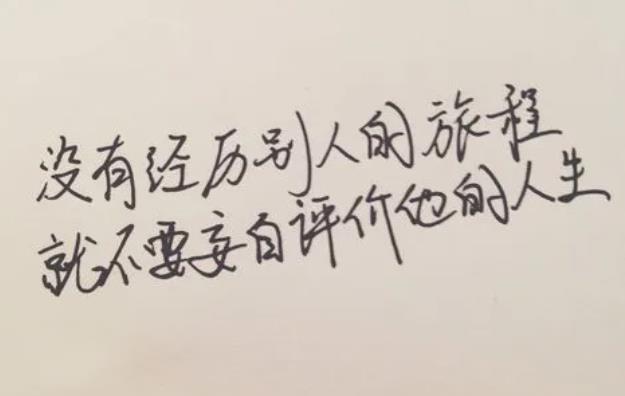 没有经历别人的旅程
就不要妄自评价他的人生